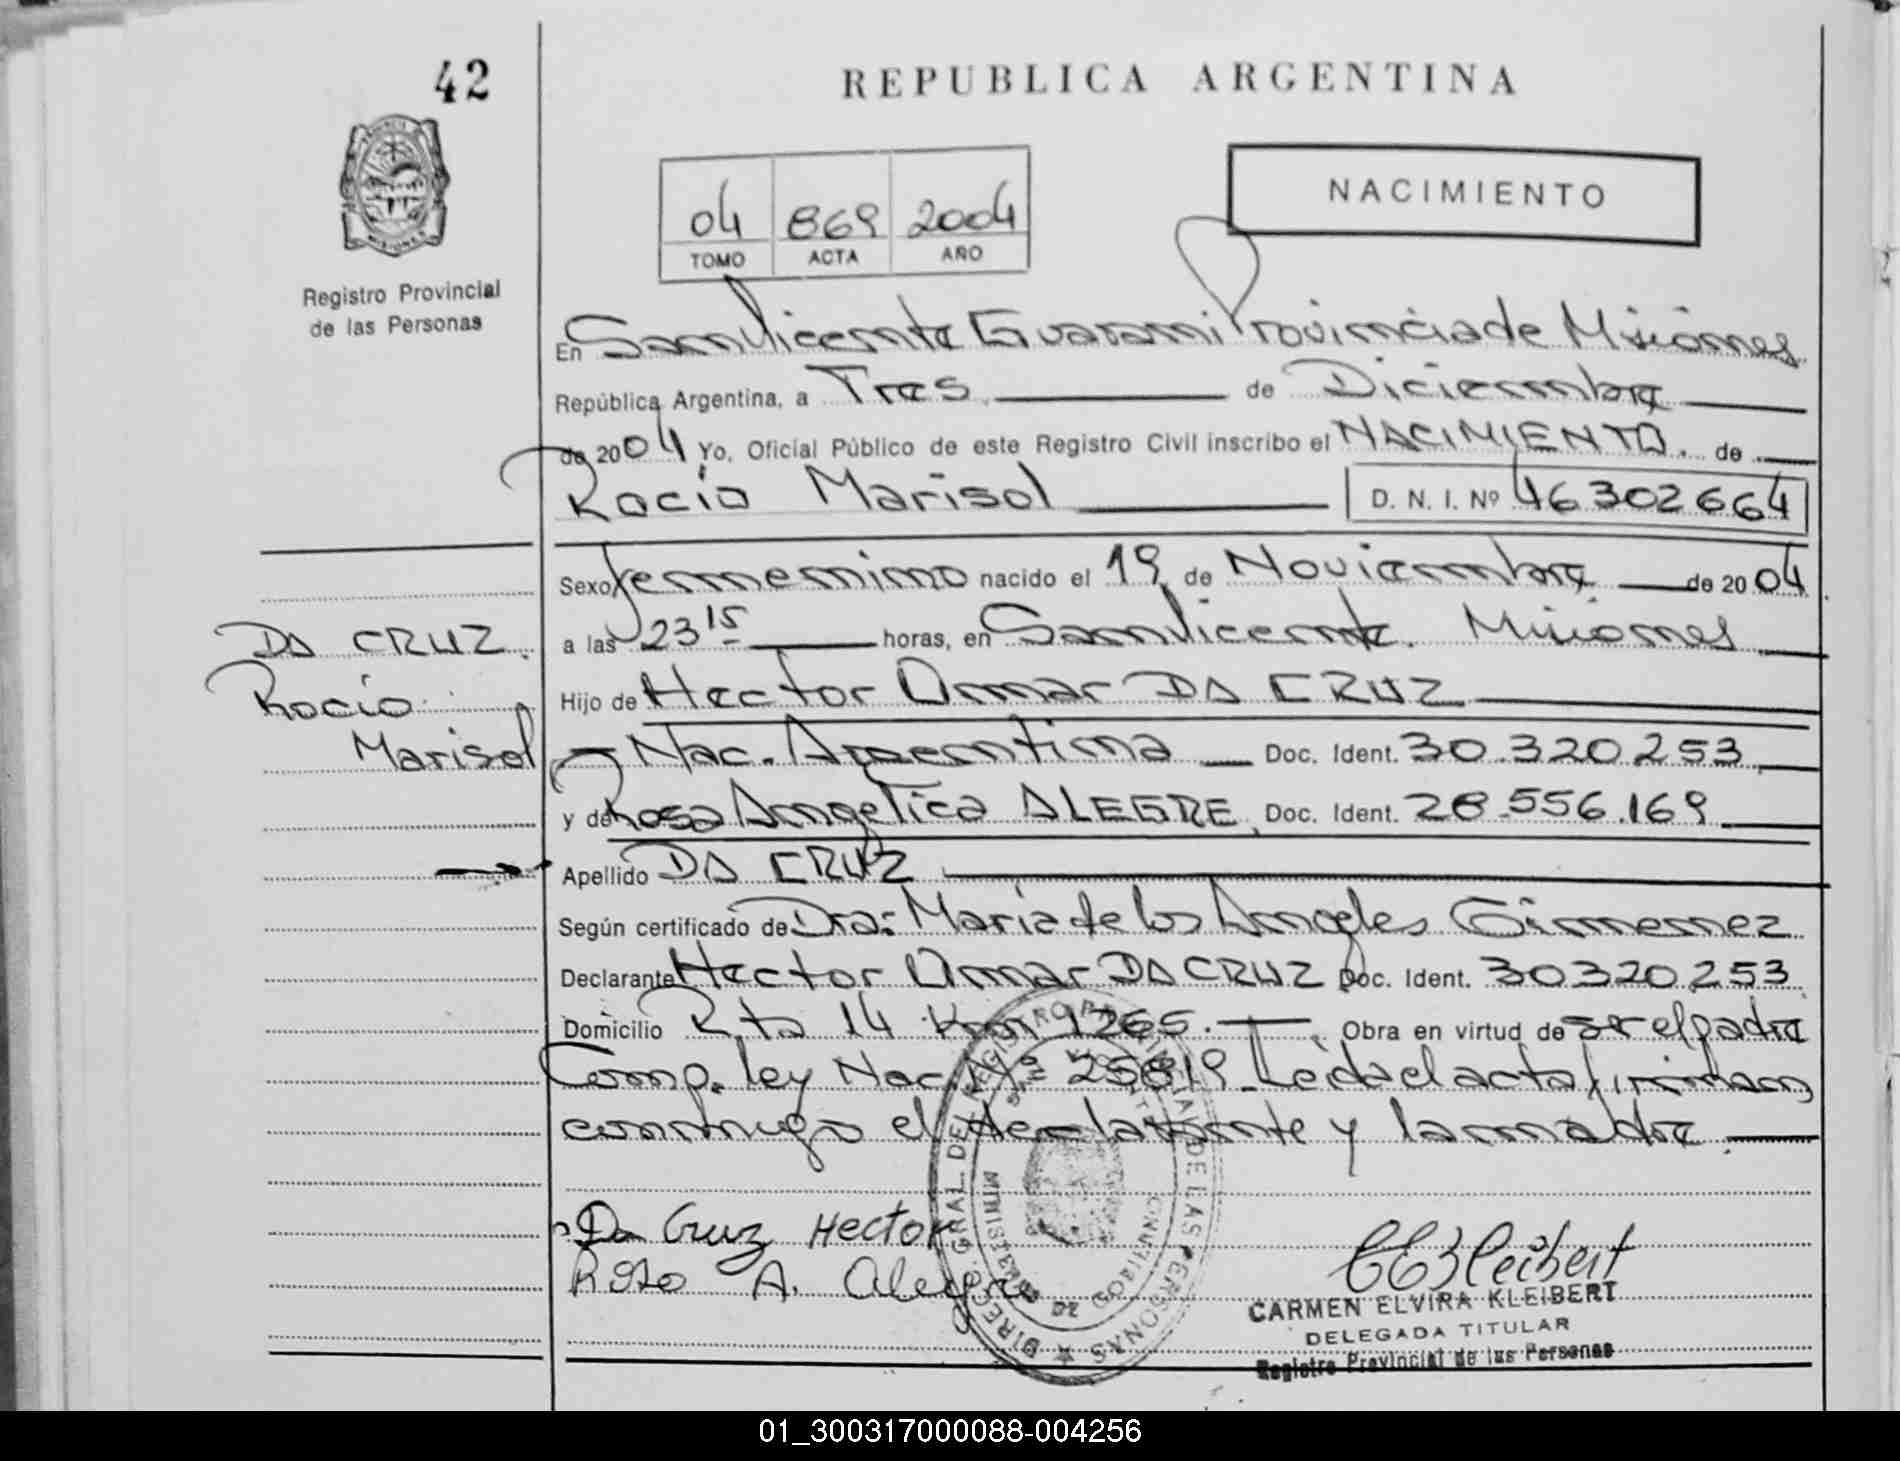 42
REPUBLICA ARGENTINA
04 869 2004
TOMO ACTA AÑO
NACIMIENTO
Registro Provincial
de las Personas
En San Vicente Guarani Provincia de Misiones
República Argentina, a Tres de Diciembre
de 2004 Yo, Oficial Público de este Registro Civil inscribo el NACIMIENTO. de
Rocío Marisol D. N. I. Nº 46302664
Sexo femenino nacido el 19 de Noviembre de 2004
DA CRUZ.
Rocío
Marisol
a las 23 15 horas, en San Vicente. Misiones
Hijo de Hector Omar DA CRUZ
Nac. Argentina Doc. Ident. 30.320.253
y de Rosa Angelica ALEGRE, Doc. Ident. 28.556.169
Apellido DA CRUZ
Según certificado de Dra: Maria de los Angeles Gimenez
Declarante Hector Omar DA CRUZ Doc. Ident. 30320.253
Domicilio Rta 14 Km 1265. Obra en virtud de ser el padre
Comp. ley Nac. Nº 25819 Leida el acta firman
conmigo el declarante y la madre.
Da Cruz Hector
Rosa A. Alegre
DIREC. GRAL. DEL REGISTRO PROVINCIAL DE LAS PERSONAS
MINISTERIO DE GOBIERNO
CEKleibert
CARMEN ELVIRA KLEIBERT
DELEGADA TITULAR
Registro Provincial de las Personas
01_300317000088-004256